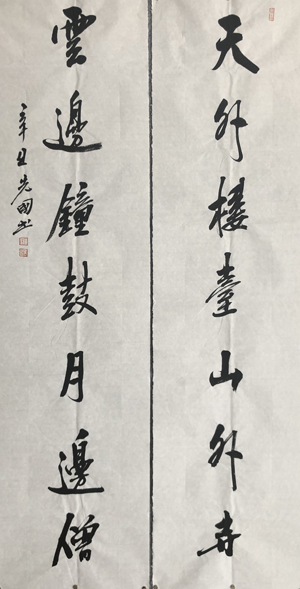 天外樓臺山外寺
雲邊鐘鼓月邊僧
辛丑先國書